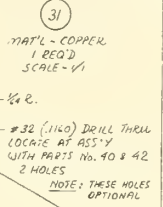 31
MAT'L - COPPER
1 REQ'D
SCALE - 1/1
1/64 R.
#32 (.1160) DRILL THRU
LOCATE AT ASS'Y
WITH PARTS NO. 40 & 42
2 HOLES
NOTE: THESE HOLES
OPTIONAL